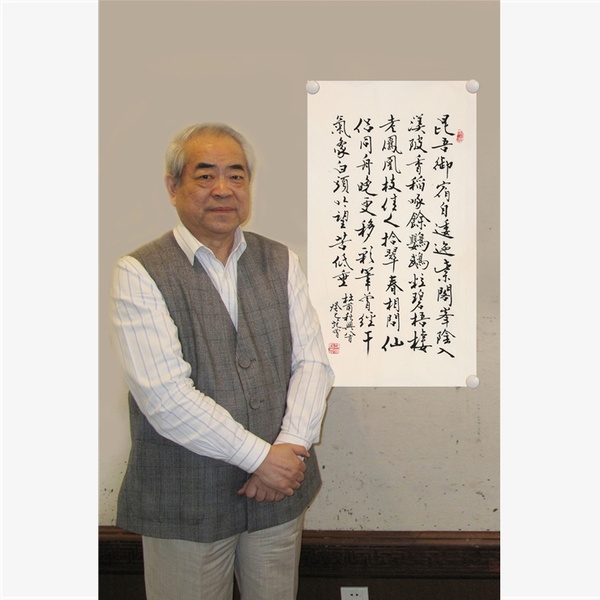 昆吾御宿自逶迤紫閣峯陰入
渼陂香稻啄餘鸚鵡粒碧梧棲
老鳳凰枝佳人拾翠春相問仙
侶同舟晚更移彩筆曾經干
氣象白頭吟望苦低垂
杜甫秋興八首
癸巳